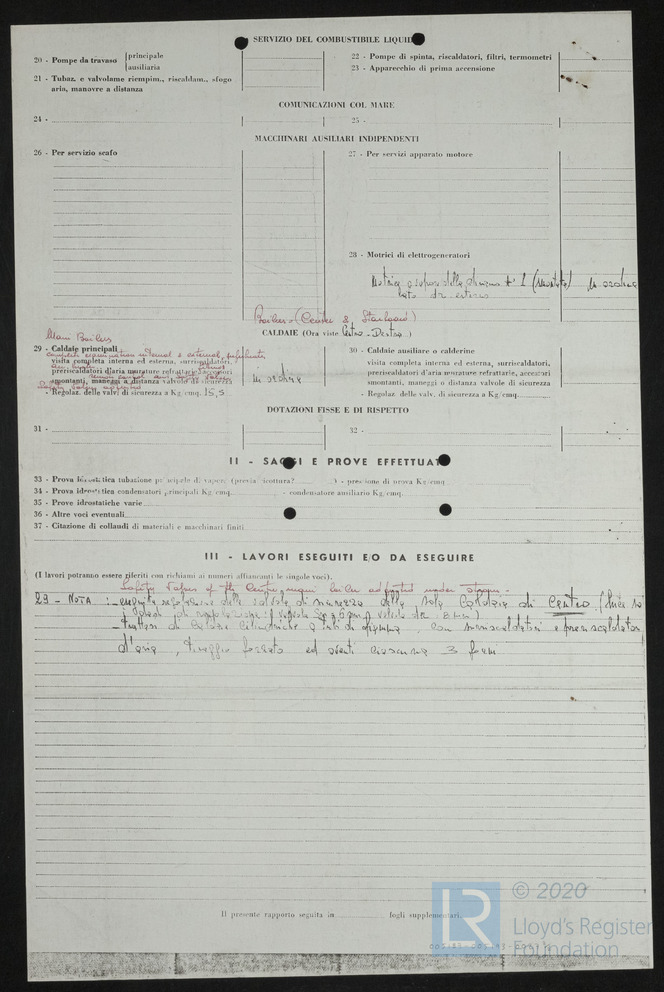 SERVIZIO DEL COMBUSTIBILE LIQUIDO
20 - Pompe da travaso principale
ausiliaria
21 - Tubaz. e valvolame riempim., riscaldam., sfogo
aria, manovre a distanza
22 - Pompe di spinta, riscaldatori, filtri, termometri
23 - Apparecchio di prima accensione
COMUNICAZIONI COL MARE
24 -
25 -
MACCHINARI AUSILIARI INDIPENDENTI
26 - Per servizio scafo
27 - Per servizi apparato motore
28 - Motrici di elettrogeneratori
Motrice a vapore della dinamo N° 1 (smontata) in ordine
lato dr. esterno
Boilers (Center & Starboard)
CALDAIE (Ora viste Centro - Destra)
Main Boilers
29 - Caldaie principali
complete examination internal & external, superheaters
visita completa interna ed esterna, surriscaldatori,
preriscaldatori d'aria murature refrattarie, accessori
smontanti, maneggi a distanza valvole di sicurezza
- Regolaz. delle valv. di sicurezza a Kg/cmq. 15,5
in ordine
30 - Caldaie ausiliare o calderine
visita completa interna ed esterna, surriscaldatori,
preriscaldatori d'aria murature refrattarie, accessori
smontanti, maneggi o distanza valvole di sicurezza
- Regolaz. delle valv. di sicurezza a Kg/cmq.
DOTAZIONI FISSE E DI RISPETTO
31 -
32 -
II - SAGGI E PROVE EFFETTUATI
33 - Prova idrostatica tubazione principale di vapore (previa ricottura? ) - pressione di prova Kg/cmq
34 - Prova idrostatica condensatori principali Kg/cmq. - condensatore ausiliario Kg/cmq.
35 - Prove idrostatiche varie
36 - Altre voci eventuali
37 - Citazione di collaudi di materiali e macchinari finiti
III - LAVORI ESEGUITI E/O DA ESEGUIRE
(I lavori potranno essere riferiti con richiami ai numeri affiancanti le singole voci).
Safety Valves of the Centre main boiler adjusted under steam -
29 - NOTA : - eseguita regolazione delle valvole di sicurezza della sola Caldaia di Centro
- trattasi di Caldaie cilindriche a tubi di fiamma, con surriscaldatori e preriscaldatori
d'aria, tiraggio forzato ed aventi ciascuna 3 forni
Il presente rapporto seguita in fogli supplementari.
LR
© 2020
Lloyd's Register
Foundation